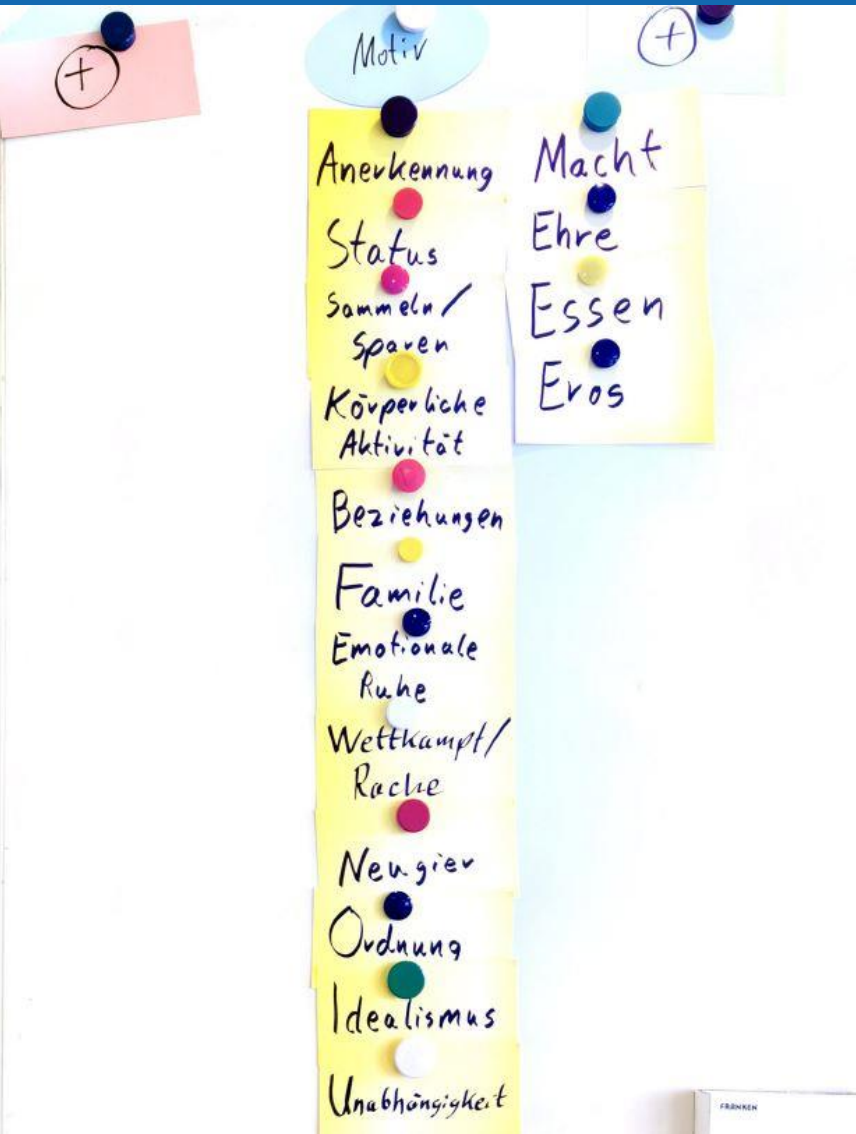 +
Motiv
+
Anerkennung
Status
Sammeln/
Sparen
Körperliche
Aktivität
Beziehungen
Familie
Emotionale
Ruhe
Wettkampf/
Rache
Neugier
Ordnung
Idealismus
Unabhängigkeit
Macht
Ehre
Essen
Eros
FRANKEN